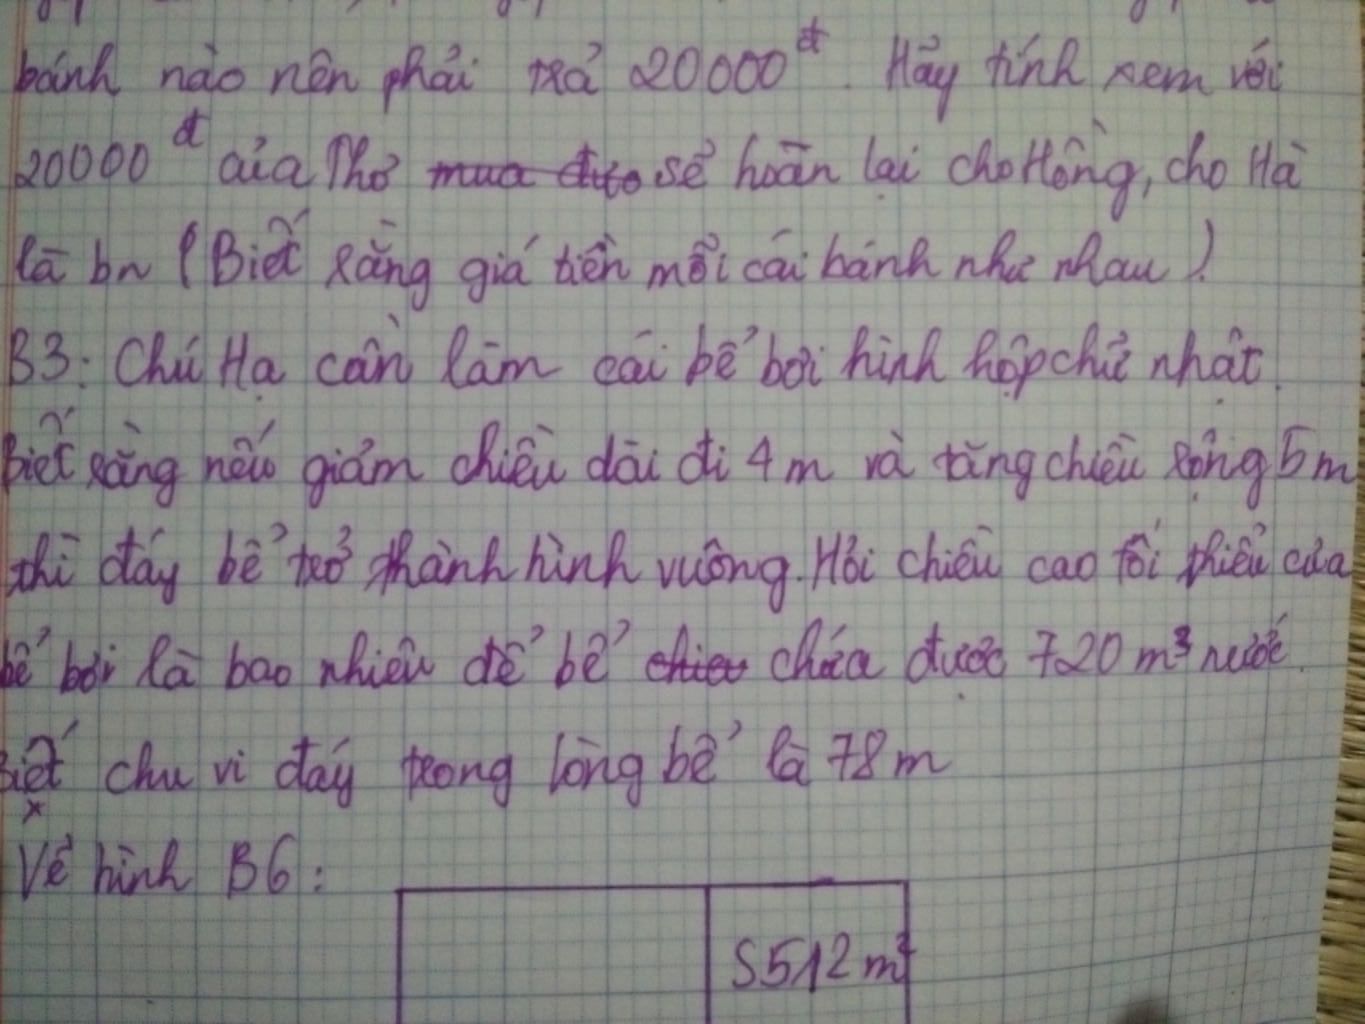 bánh nào nên phải trả 20000đ. Hãy tính xem với
20000đ của Thơ mua đưo sẽ hoàn lại cho Hồng, cho Hà
là bn (Biết rằng giá tiền mỗi cái bánh như nhau)
B3: Chú Hạ cần làm cái bể bơi hình hộp chữ nhật.
Biết rằng nếu giảm chiều dài đi 4m và tăng chiều rộng 5m
thì đáy bể trở thành hình vuông. Hỏi chiều cao tối thiểu của
bể bơi là bao nhiêu để bể chieu chứa được 720 m³ nước.
Biết chu vi đáy trong lòng bể là 78m
Vẽ hình B6:
S512m²